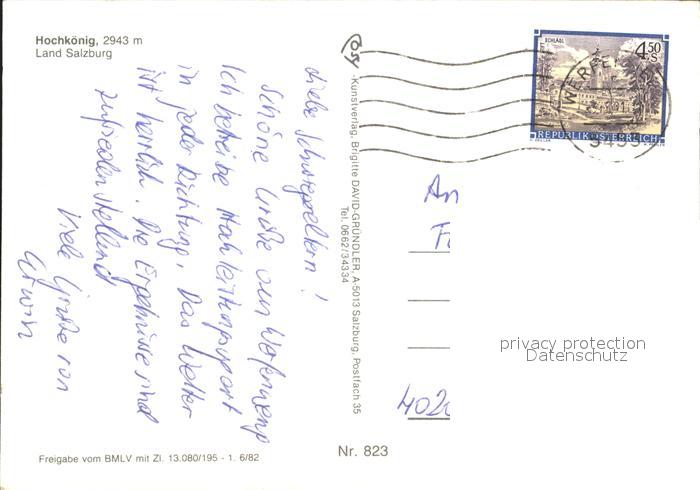 Hochkönig, 2943 m
Land Salzburg
Liebe Schwiegereltern!
Schöne Grüße aus Werfenweng
Ich betreibe Hochleistungssport
in jeder Richtung. Das Wetter
ist herrlich. Die Ergebnisse sind
zufriedenstellend
Viele Grüße von
Erwin
Freigabe vom BMLV mit Zl. 13.080/195 - 1. 6/82
Kunstverlag, Brigitte DAVID-GRÜNDLER, A-5013 Salzburg, Postfach 35
Tel. 0662/34334
Nr. 823
SCHLÄGL
4.50
S
REPUBLIK ÖSTERREICH
An
402
privacy protection
Datenschutz